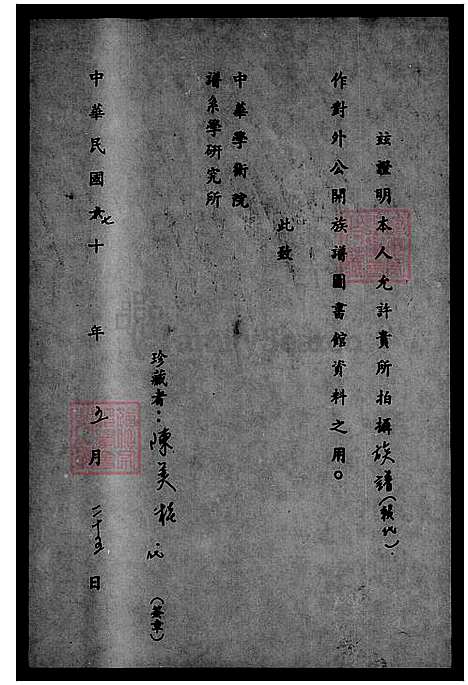 玆證明本人允許貴所拍攝族譜(賴代).
作對外公開族譜圖書館資料之用。
此致
中華學術院
譜系學研究所
珍藏者：陳美 代 (簽章)
中華民國六十七年五月二十五日